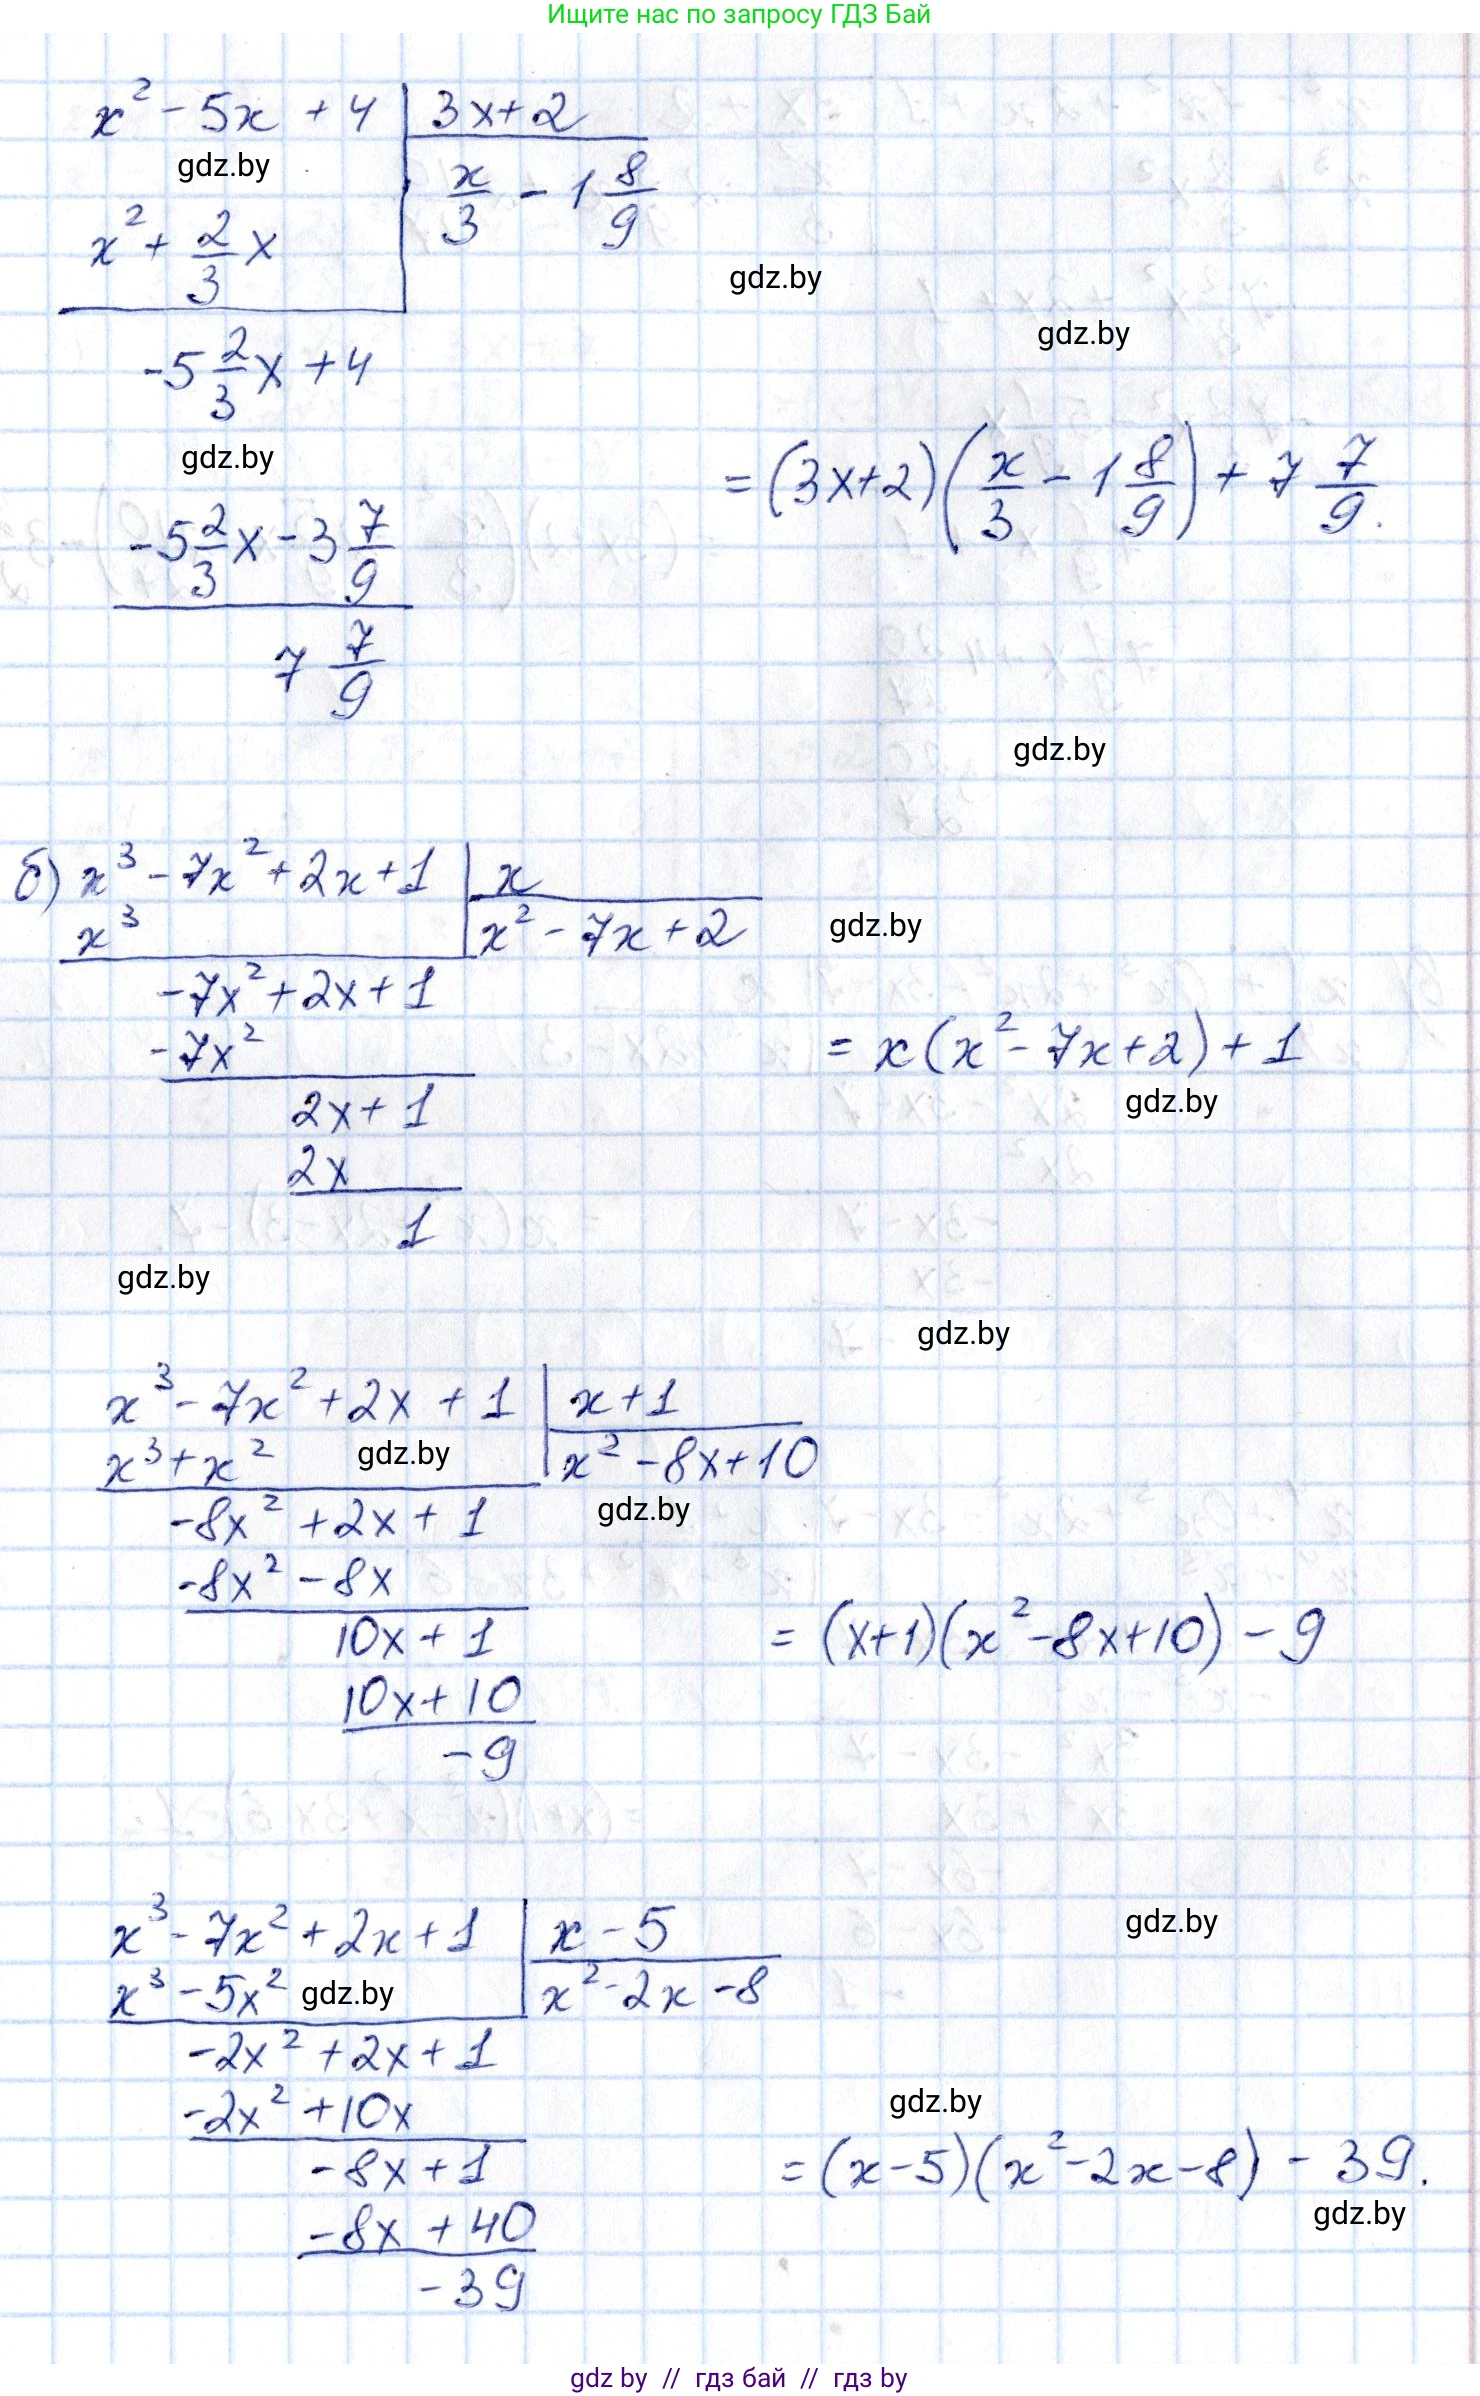 Ищите нас по запросу ГДЗ Бай
x² - 5x + 4 | 3x + 2
gdz.by
x/3 - 1 8/9
x² + 2/3 x
gdz.by
gdz.by
-5 2/3 x + 4
gdz.by
= (3x+2)(x/3 - 1 8/9) + 7 7/9.
-5 2/3 x - 3 7/9
7 7/9
gdz.by
б) x³ - 7x² + 2x + 1 | x
x³ | x² - 7x + 2
gdz.by
-7x² + 2x + 1
-7x²
= x(x² - 7x + 2) + 1
gdz.by
2x + 1
2x
1
gdz.by
gdz.by
x³ - 7x² + 2x + 1 | x + 1
x³ + x² gdz.by | x² - 8x + 10
gdz.by
-8x² + 2x + 1
-8x² - 8x
10x + 1
= (x+1)(x² - 8x + 10) - 9
10x + 10
-9
x³ - 7x² + 2x + 1 | x - 5
gdz.by
x³ - 5x² gdz.by | x² - 2x - 8
-2x² + 2x + 1
-2x² + 10x
gdz.by
-8x + 1
= (x-5)(x² - 2x - 8) - 39.
gdz.by
-8x + 40
-39
gdz by // гдз бай // гдз by